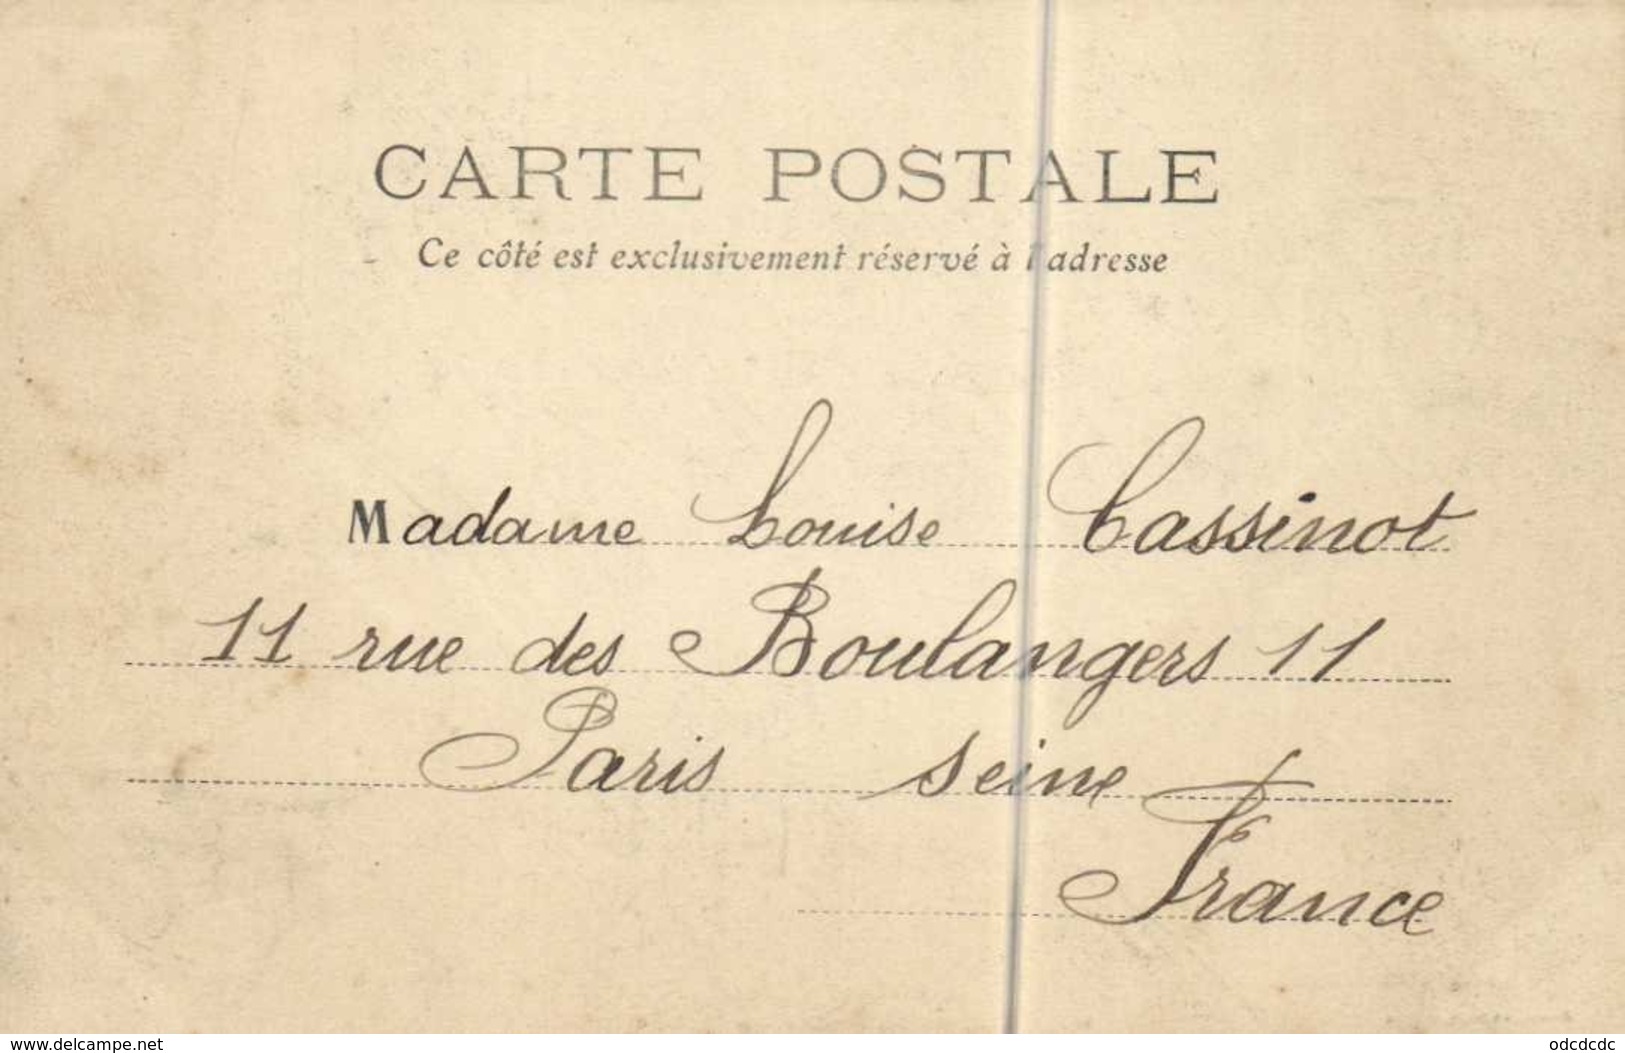 CARTE POSTALE
Ce côté est exclusivement réservé à l'adresse
Madame Louise Cassinot
11 rue des Boulangers 11
Paris Seine
France
www.delcampe.net
odcdcdc